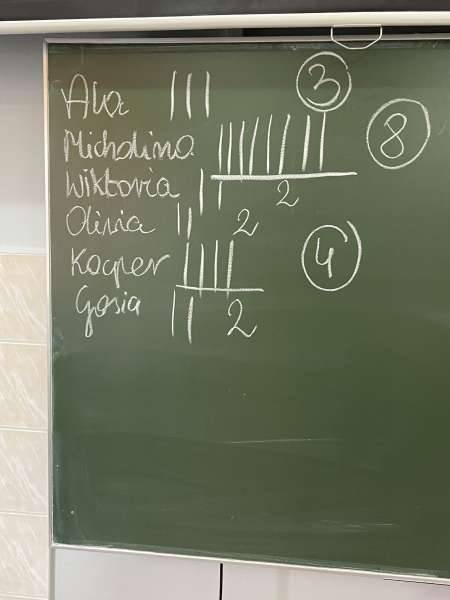 Ala ||| 3
Michalina |||||||| 8
Wiktoria || 2
Oliwia || 2
Kacper |||| 4
Gosia || 2